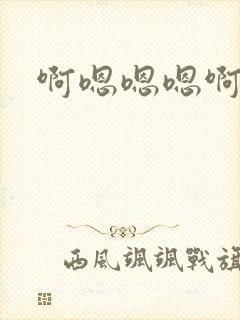 啊嗯嗯嗯啊
西风颯颯戰旗